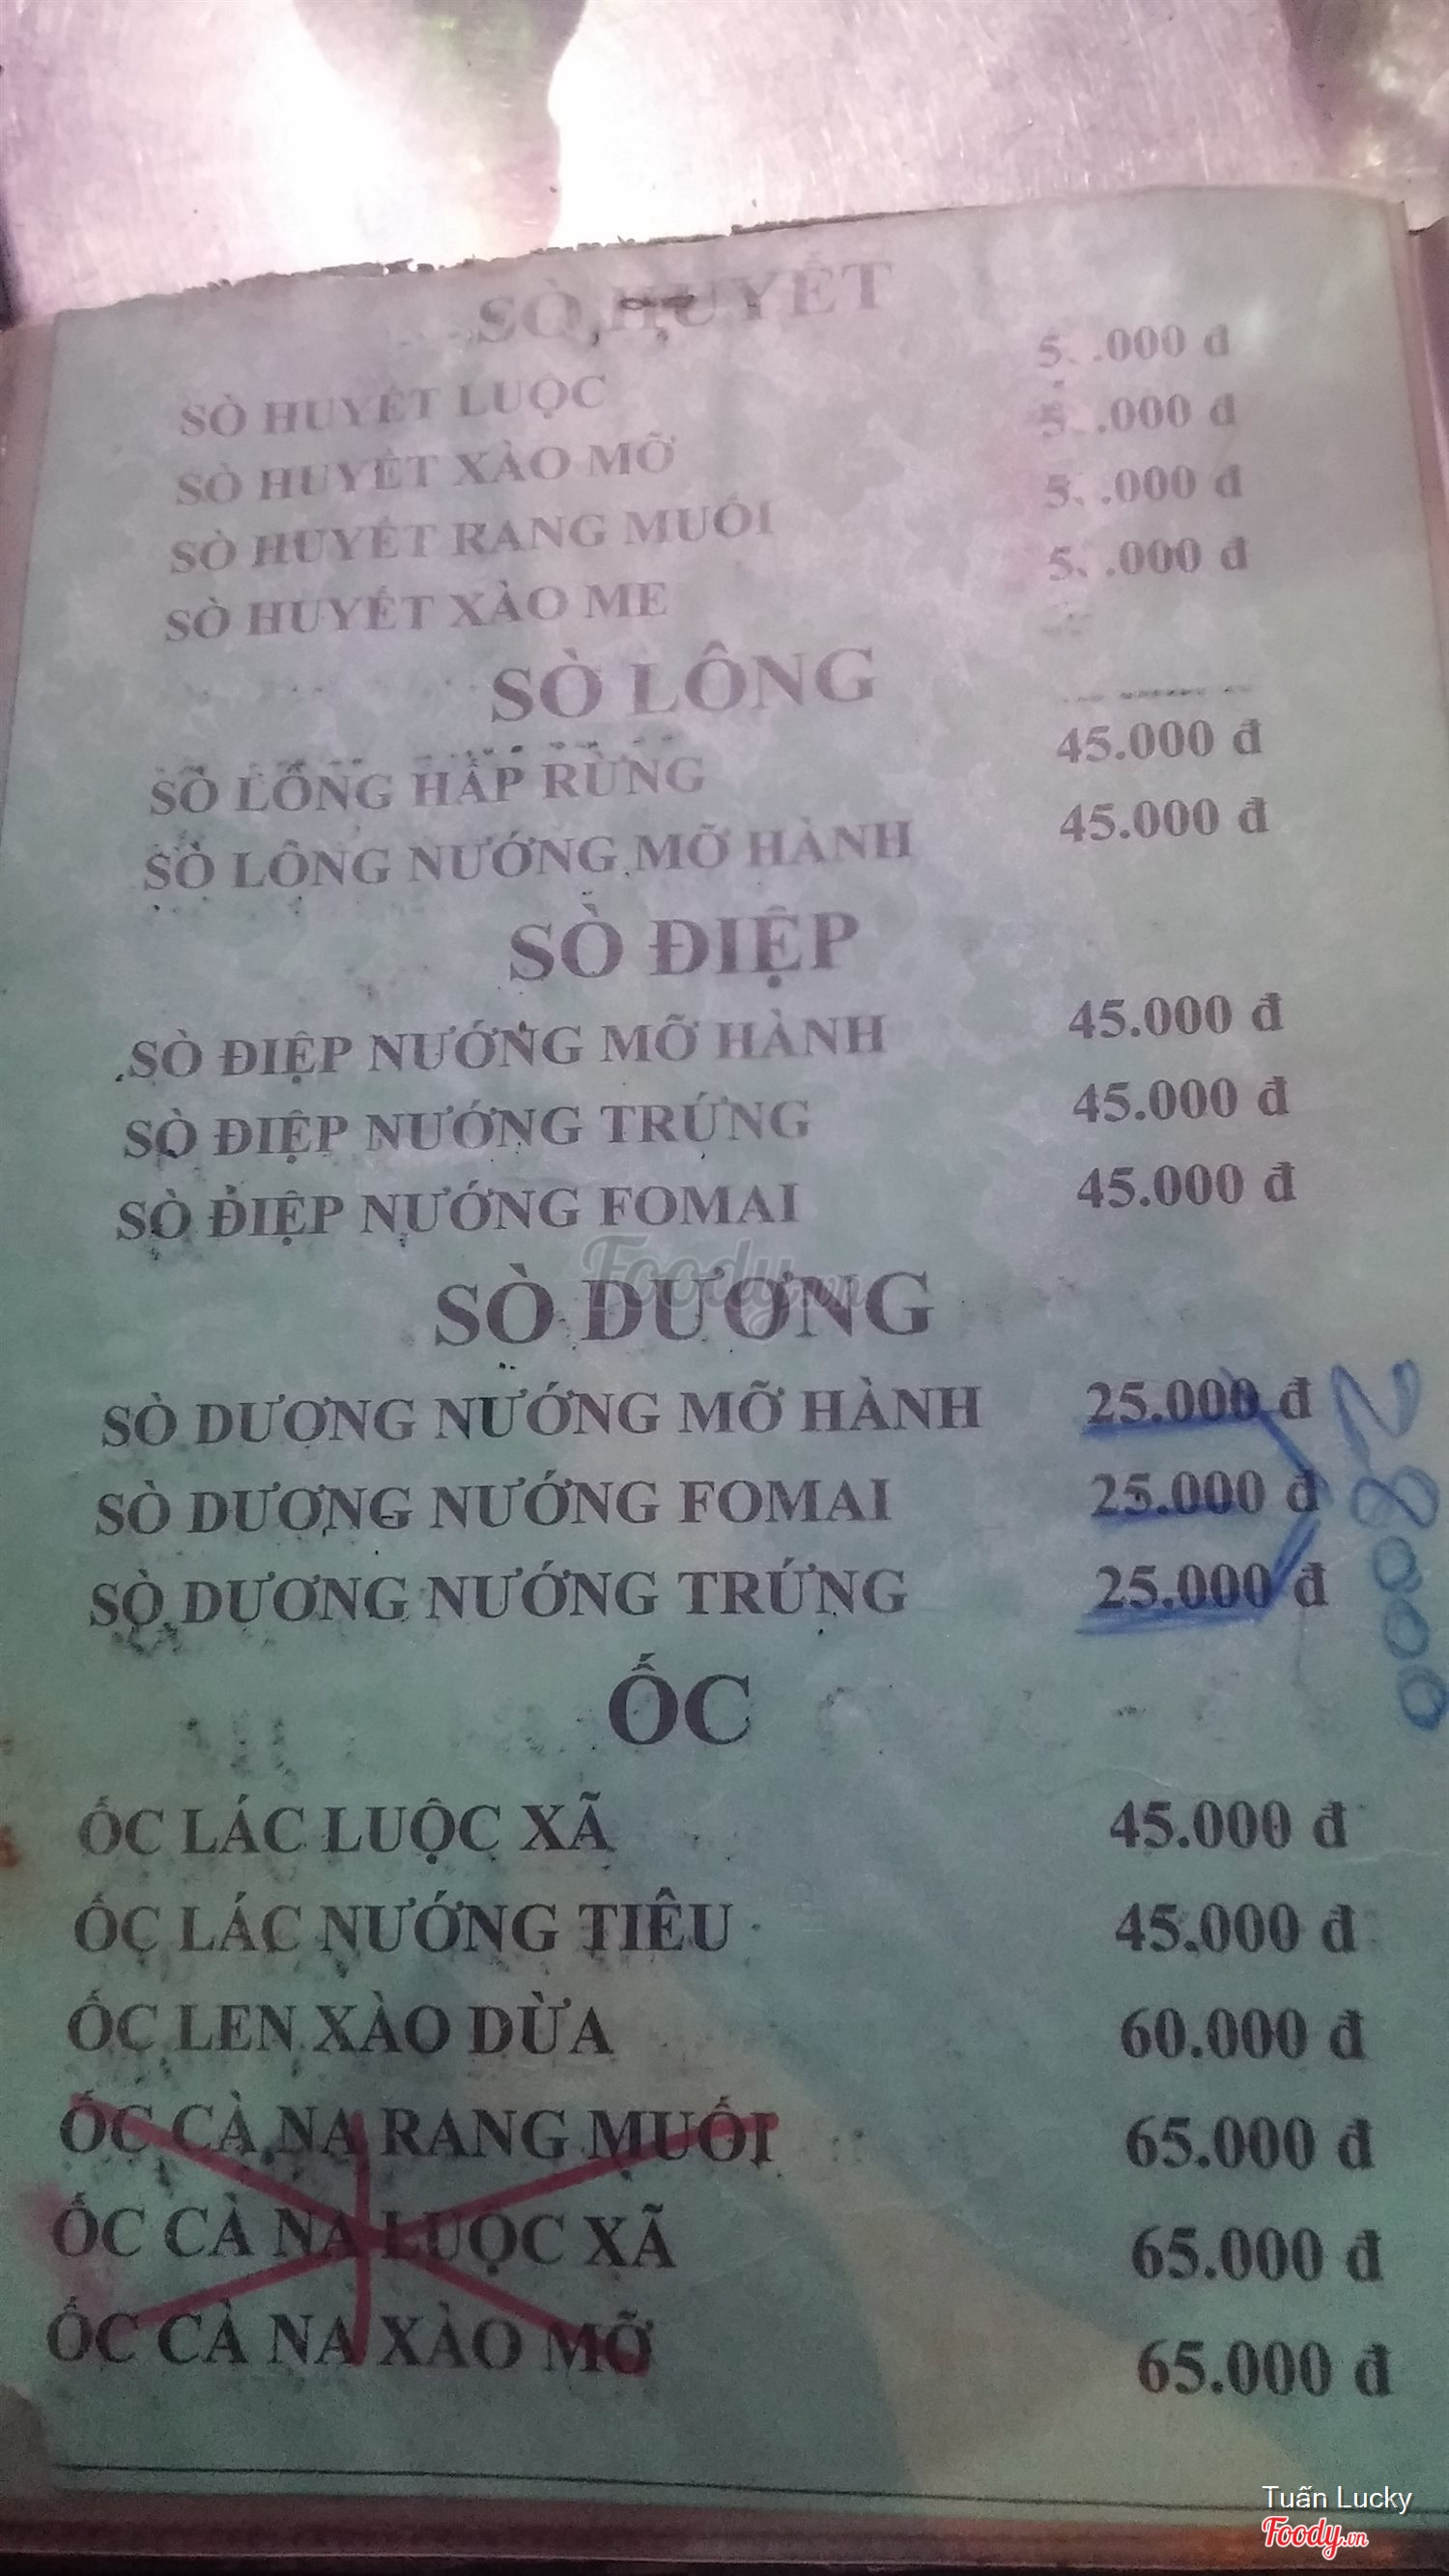 SÒ HUYẾT
SÒ HUYẾT LUỘC
SÒ HUYẾT XÀO MỠ
SÒ HUYẾT RANG MUỐI
SÒ HUYẾT XÀO ME
SÒ LÔNG
SÒ LÔNG HẤP RỪNG 45.000 đ
SÒ LÔNG NƯỚNG MỠ HÀNH 45.000 đ
SÒ ĐIỆP
SÒ ĐIỆP NƯỚNG MỠ HÀNH 45.000 đ
SÒ ĐIỆP NƯỚNG TRỨNG 45.000 đ
SÒ ĐIỆP NƯỚNG FOMAI 45.000 đ
Foody.vn
SÒ DƯƠNG
SÒ DƯƠNG NƯỚNG MỠ HÀNH 25.000 đ
SÒ DƯƠNG NƯỚNG FOMAI 25.000 đ
SÒ DƯƠNG NƯỚNG TRỨNG 25.000 đ
28000
ỐC
ỐC LÁC LUỘC XÃ 45.000 đ
ỐC LÁC NƯỚNG TIÊU 45.000 đ
ỐC LEN XÀO DỪA 60.000 đ
ỐC CÀ NA RANG MUỐI 65.000 đ
ỐC CÀ NA LUỘC XÃ 65.000 đ
ỐC CÀ NA XÀO MỠ 65.000 đ
Tuấn Lucky
Foody.vn